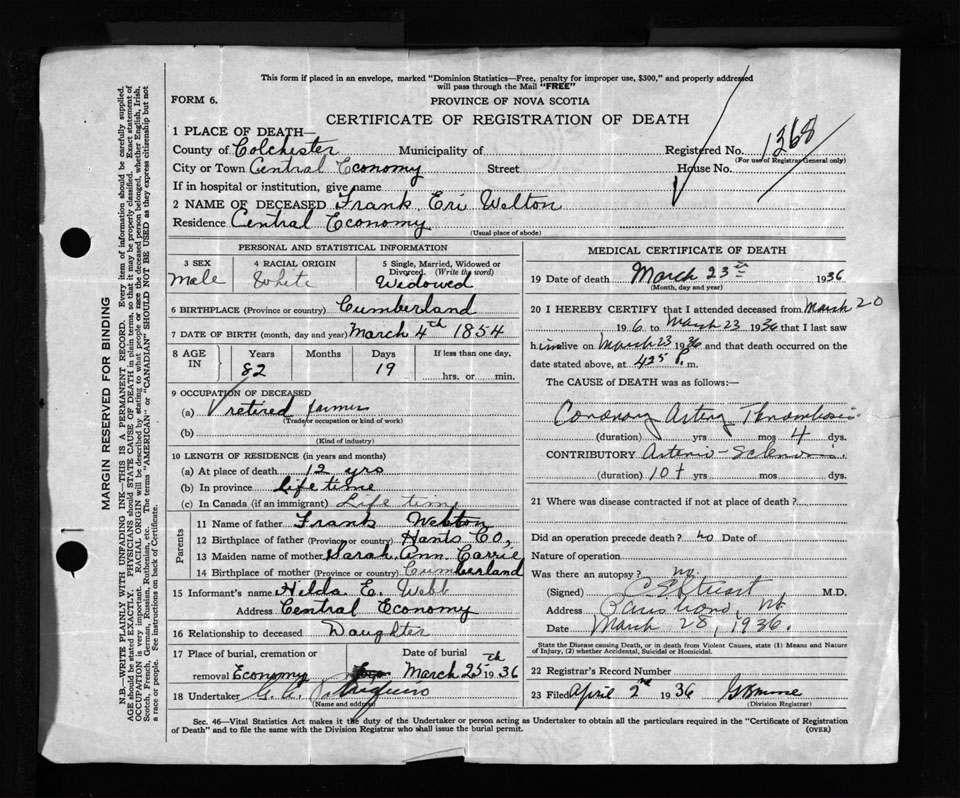 This form if placed in an envelope, marked "Dominion Statistics—Free, penalty for improper use, $300," and properly addressed
will pass through the Mail "FREE"
FORM 6.
PROVINCE OF NOVA SCOTIA
CERTIFICATE OF REGISTRATION OF DEATH
1 PLACE OF DEATH—
County of Colchester Municipality of Registered No. 1368
(For use of Registrar General only)
City or Town Central Economy Street House No.
If in hospital or institution, give name
2 NAME OF DECEASED Frank Eri Welton
Residence Central Economy
(Usual place of abode)
PERSONAL AND STATISTICAL INFORMATION
3 SEX
Male
4 RACIAL ORIGIN
White
5 Single, Married, Widowed or
Divorced. (Write the word)
Widowed
6 BIRTHPLACE (Province or country) Cumberland
7 DATE OF BIRTH (month, day and year) March 4th 1854
8 AGE IN
Years Months Days If less than one day,
82 19 hrs. or min.
9 OCCUPATION OF DECEASED
(a) retired farmer
(Trade or occupation or kind of work)
(b)
(Kind of industry)
10 LENGTH OF RESIDENCE (in years and months)
(a) At place of death 12 yrs
(b) In province Life time
(c) In Canada (if an immigrant) Life time
Parents
11 Name of father Frank Welton
12 Birthplace of father (Province or country) Hants Co,
13 Maiden name of mother Sarah Ann Carrie
14 Birthplace of mother (Province or country) Cumberland
15 Informant's name Hilda E. Webb
Address Central Economy
16 Relationship to deceased Daughter
17 Place of burial, cremation or Date of burial
removal Economy March 25th 1936
18 Undertaker
(Name and address)
MEDICAL CERTIFICATE OF DEATH
19 Date of death March 23rd 1936
(Month, day and year)
20 I HEREBY CERTIFY that I attended deceased from March 20
1936 to March 23 1936 that I last saw
him alive on March 23 1936 and that death occurred on the
date stated above, at 4 25 P. m.
The CAUSE OF DEATH was as follows:—
Coronary Artery Thrombosis
(duration) yrs mos 4 dys.
CONTRIBUTORY Arterio-Sclerosis.
(duration) 10+ yrs mos dys.
21 Where was disease contracted if not at place of death?
Did an operation precede death? no Date of
Nature of operation
Was there an autopsy? no.
(Signed) Stuart M.D.
Address Parrsboro, NS
Date March 28, 1936.
State the Disease causing Death, or in death from Violent Causes, state (1) Means and Nature
of Injury, (2) whether Accidental, Suicidal or Homicidal.
22 Registrar's Record Number
23 Filed April 2nd 1936
(Division Registrar)
Sec. 46—Vital Statistics Act makes it the duty of the Undertaker or person acting as Undertaker to obtain all the particulars required in the "Certificate of Registration
of Death" and to file the same with the Division Registrar who shall issue the burial permit. (OVER)
MARGIN RESERVED FOR BINDING
N.B.—WRITE PLAINLY WITH UNFADING INK—THIS IS A PERMANENT RECORD. Every item of information should be carefully supplied.
AGE should be stated EXACTLY. PHYSICIANS should STATE CAUSE OF DEATH in plain terms, so that it may be properly classified. Exact statement of
OCCUPATION is very important. RACIAL ORIGIN will be described by stating to what people or race the deceased person belonged, whether English, Irish,
Scotch, French, German, Russian, Ruthenian, etc. The terms "AMERICAN" or "CANADIAN" SHOULD NOT BE USED as they express citizenship but not
a race or people. See instructions on back of Certificate.